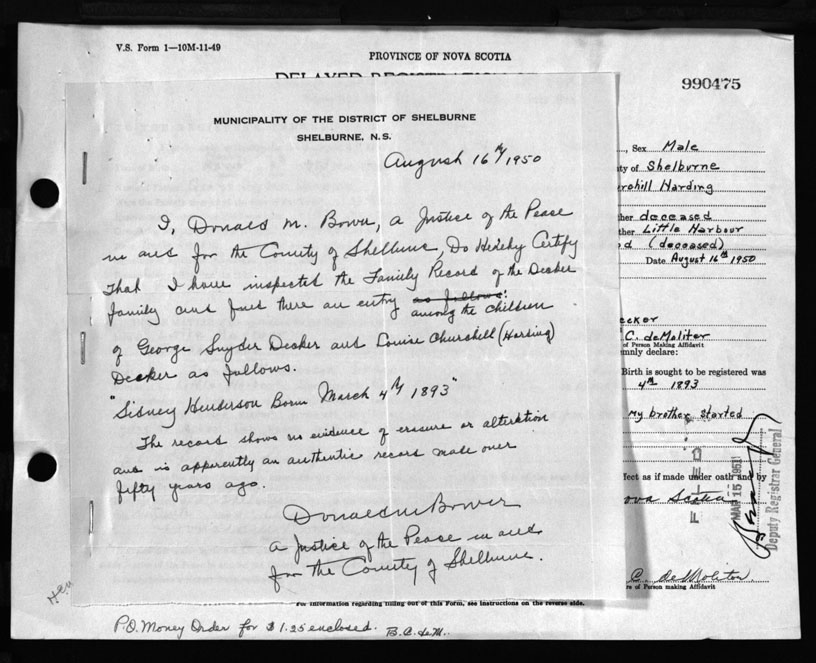 V.S. Form 1—10M-11-49
PROVINCE OF NOVA SCOTIA
990475
MUNICIPALITY OF THE DISTRICT OF SHELBURNE
SHELBURNE, N.S.
August 16th 1950
I, Donald M. Bower, a Justice of the Peace
in and for the County of Shelburne, Do Hereby Certify
That I have inspected the Family Record of the Decker
family and find there an entry as follows:
among the children
of George Snyder Decker and Louise Churchill (Harding)
Decker as follows.
"Sidney Henderson Born March 4th 1893"
The record shows no evidence of erasure or alteration
and is apparently an authentic record made over
fifty years ago.
Donald M Bower
a Justice of the Peace in and
for the County of Shelburne.
, Sex Male
ty of Shelburne
rchill Harding
her deceased
ther Little Harbour
d (deceased)
Date August 16th 1950
ecker
C. deMoliter
of Person Making Affidavit
mnly declare:
Birth is sought to be registered was
4th 1893
my brother started
fect as if made under oath and by
ova Scotia
FILED
MAR 15 1951
Deputy Registrar General
C. deMolitor
re of Person making Affidavit
For information regarding filling out of this Form, see instructions on the reverse side.
P.O. Money Order for $1.25 enclosed. B.C. deM.